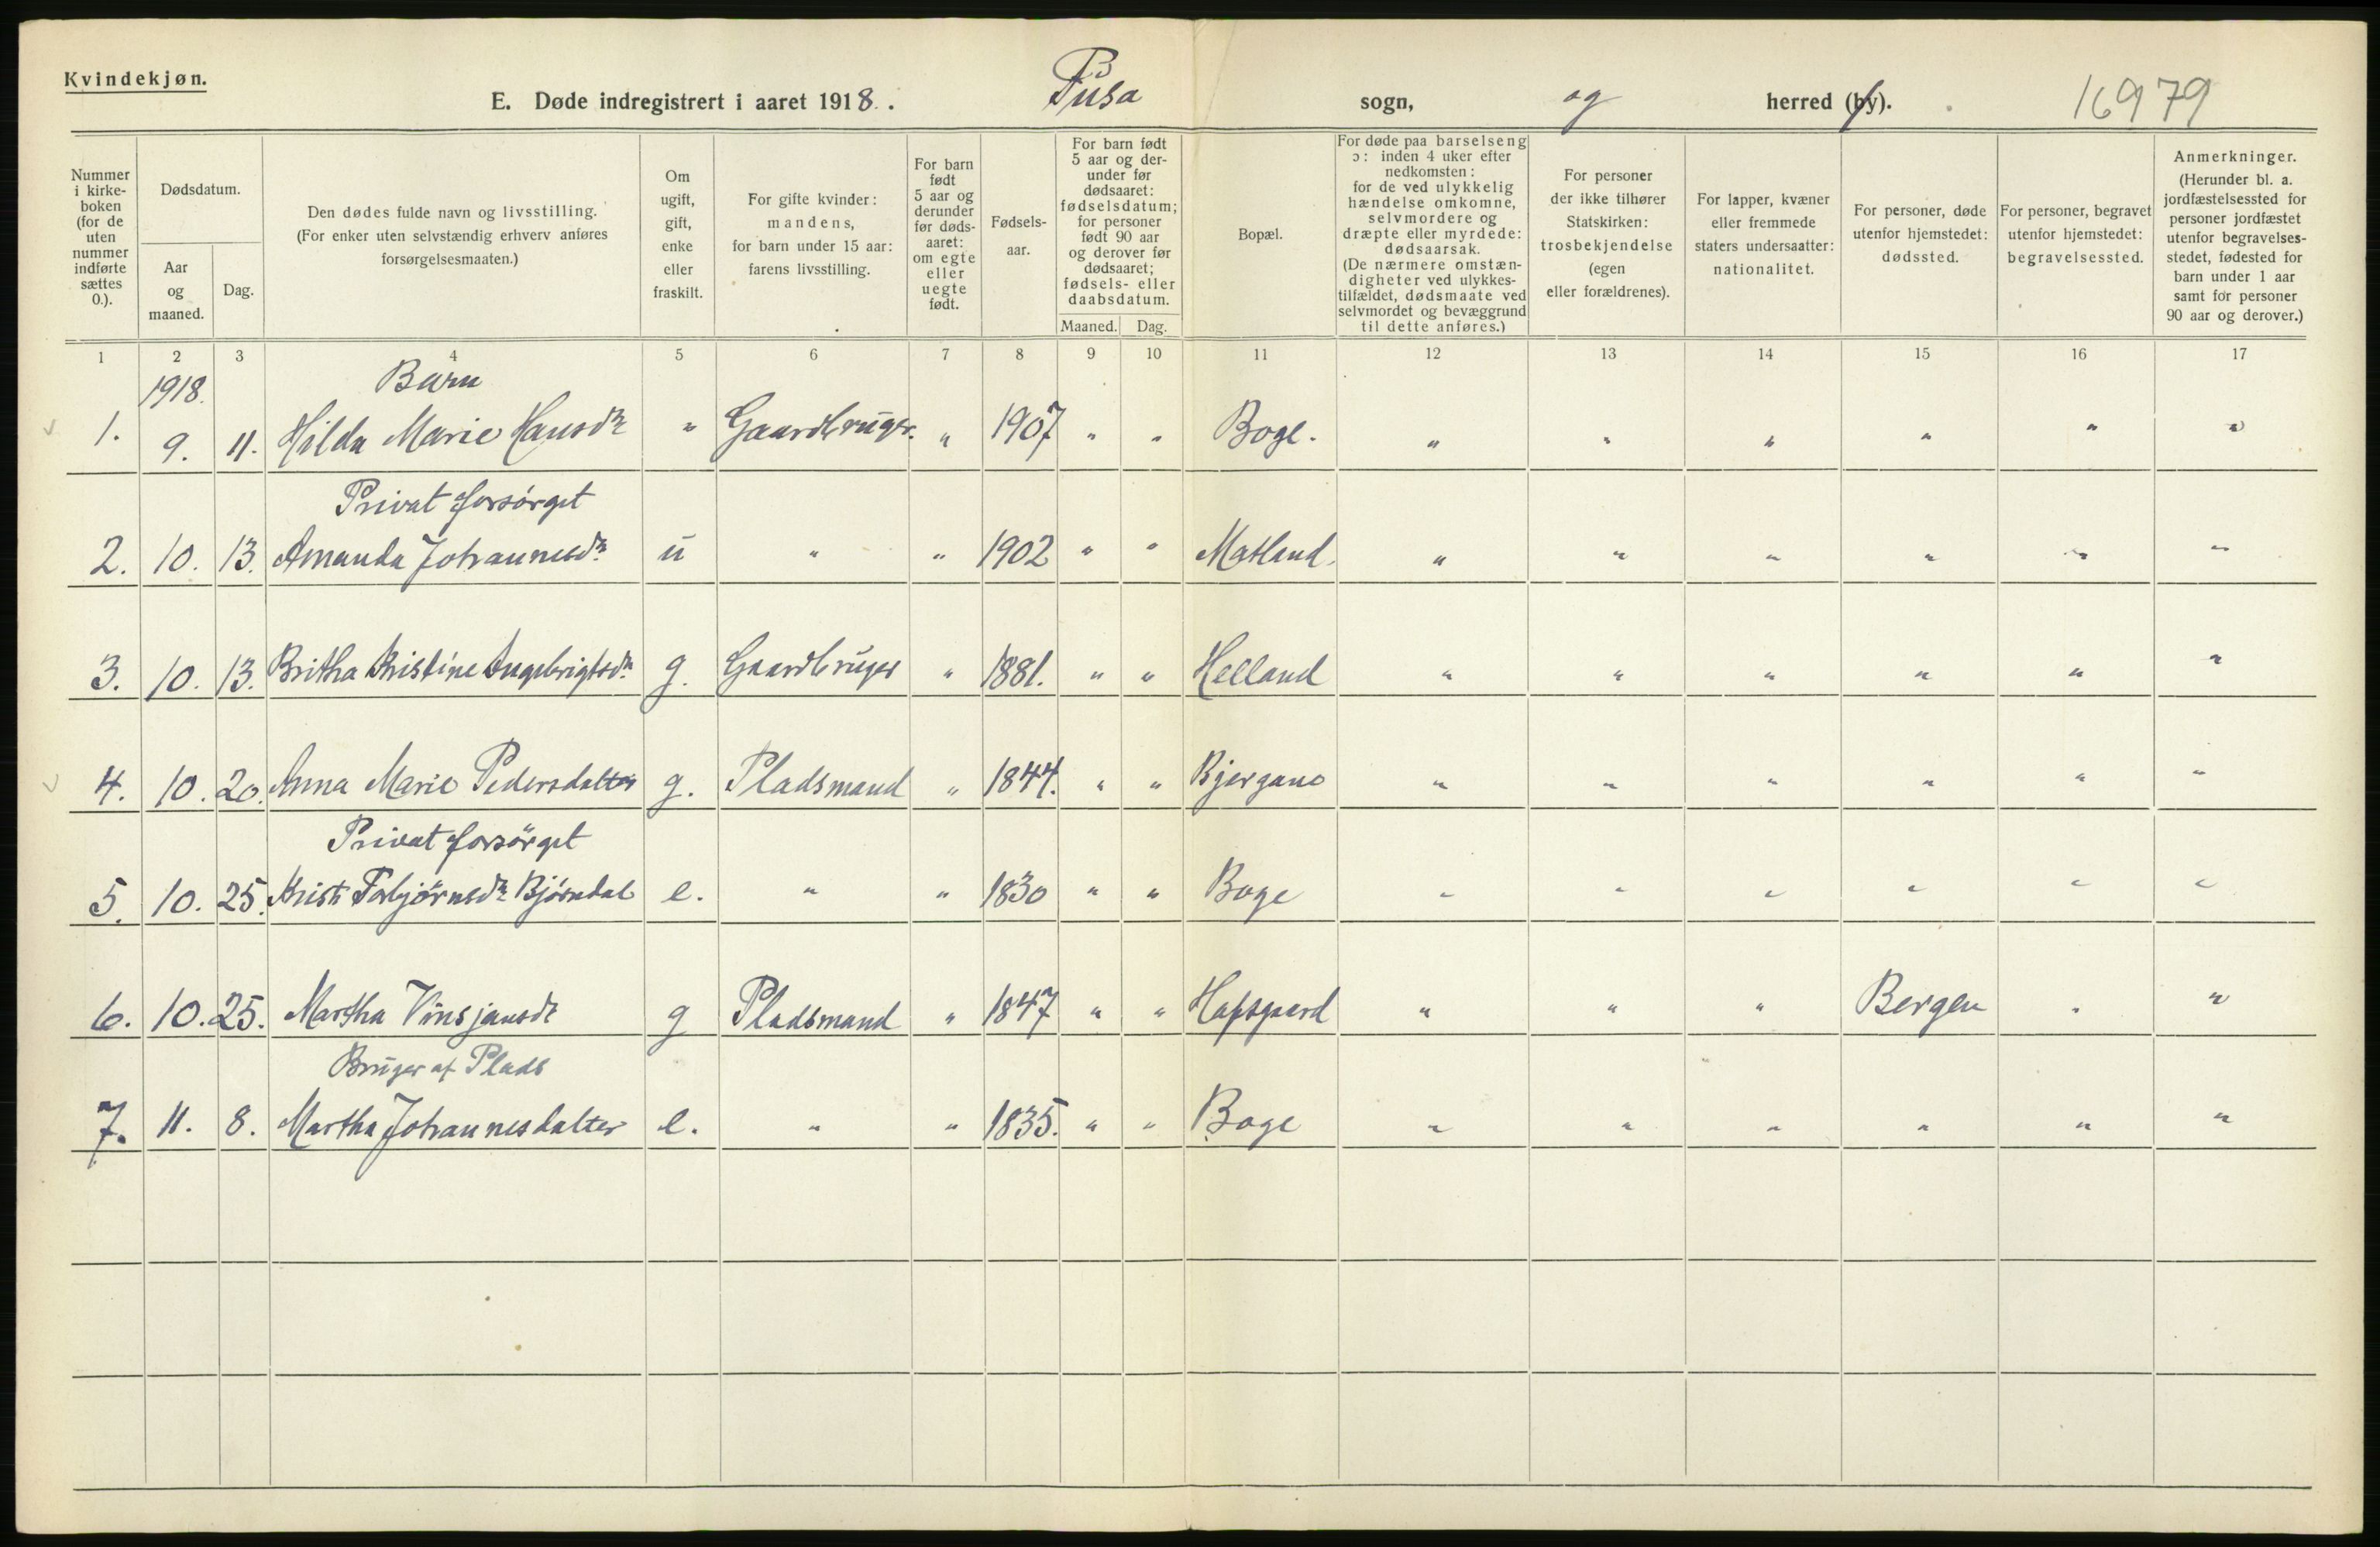 Kvindekjøn.
E. Døde indregistrert i aaret 1918. Fusa sogn, og herred (by). 16979
Nummer i kirkeboken (for de uten nummer indførte sættes 0.).
Dødsdatum.
Aar og maaned.
Dag.
Den dødes fulde navn og livsstilling. (For enker uten selvstændig erhverv anføres forsørgelsesmaaten.)
Om ugift, gift, enke eller fraskilt.
For gifte kvinder: mandens, for barn under 15 aar: farens livsstilling.
For barn født 5 aar og derunder før dødsaaret: om egte eller uegte født.
Fødselsaar.
For barn født 5 aar og derunder før dødsaaret: fødselsdatum; for personer født 90 aar og derover før dødsaaret; fødsels- eller daabsdatum.
Maaned.
Dag.
Bopæl.
For døde paa barselseng ɔ: inden 4 uker efter nedkomsten: for de ved ulykkelig hændelse omkomne, selvmordere og dræpte eller myrdede: dødsaarsak. (De nærmere omstændigheter ved ulykkestilfældet, dødsmaate ved selvmordet og bevæggrund til dette anføres.)
For personer der ikke tilhører Statskirken: trosbekjendelse (egen eller forældrenes).
For lapper, kvæner eller fremmede staters undersaatter: nationalitet.
For personer, døde utenfor hjemstedet: dødssted.
For personer, begravet utenfor hjemstedet: begravelsessted.
Anmerkninger. (Herunder bl. a. jordfæstelsessted for personer jordfæstet utenfor begravelsesstedet, fødested for barn under 1 aar samt for personer 90 aar og derover.)
1 2 3 4 5 6 7 8 9 10 11 12 13 14 15 16 17
1918. Barn
1. 9. 11. Hilda Marie Hansdr " Gaardbruger. " 1907 " " Boge. " " " " " "
Privat forsørget
2. 10. 13. Amanda Johannesdr u " " 1902 " " Matland. " " " " " "
3. 10. 13. Britha Kristine Ingebrigtsdr g. Gaardbruger " 1881. " " Helland " " " " " "
4. 10. 20. Anna Marie Pedersdatter g. Pladsmand " 1844. " " Bjergane " " " " " "
Privat forsørget
5. 10. 25. Kristi Torbjørnsdr Bjørndal e. " " 1830 " " Boge " " " " " "
6. 10. 25. Martha Vinsjansdr g Pladsmand " 1847 " " Hafsgaard " " " Bergen " "
Bruger af Plads
7. 11. 8. Martha Johannesdatter e. " " 1835. " " Boge " " " " " "